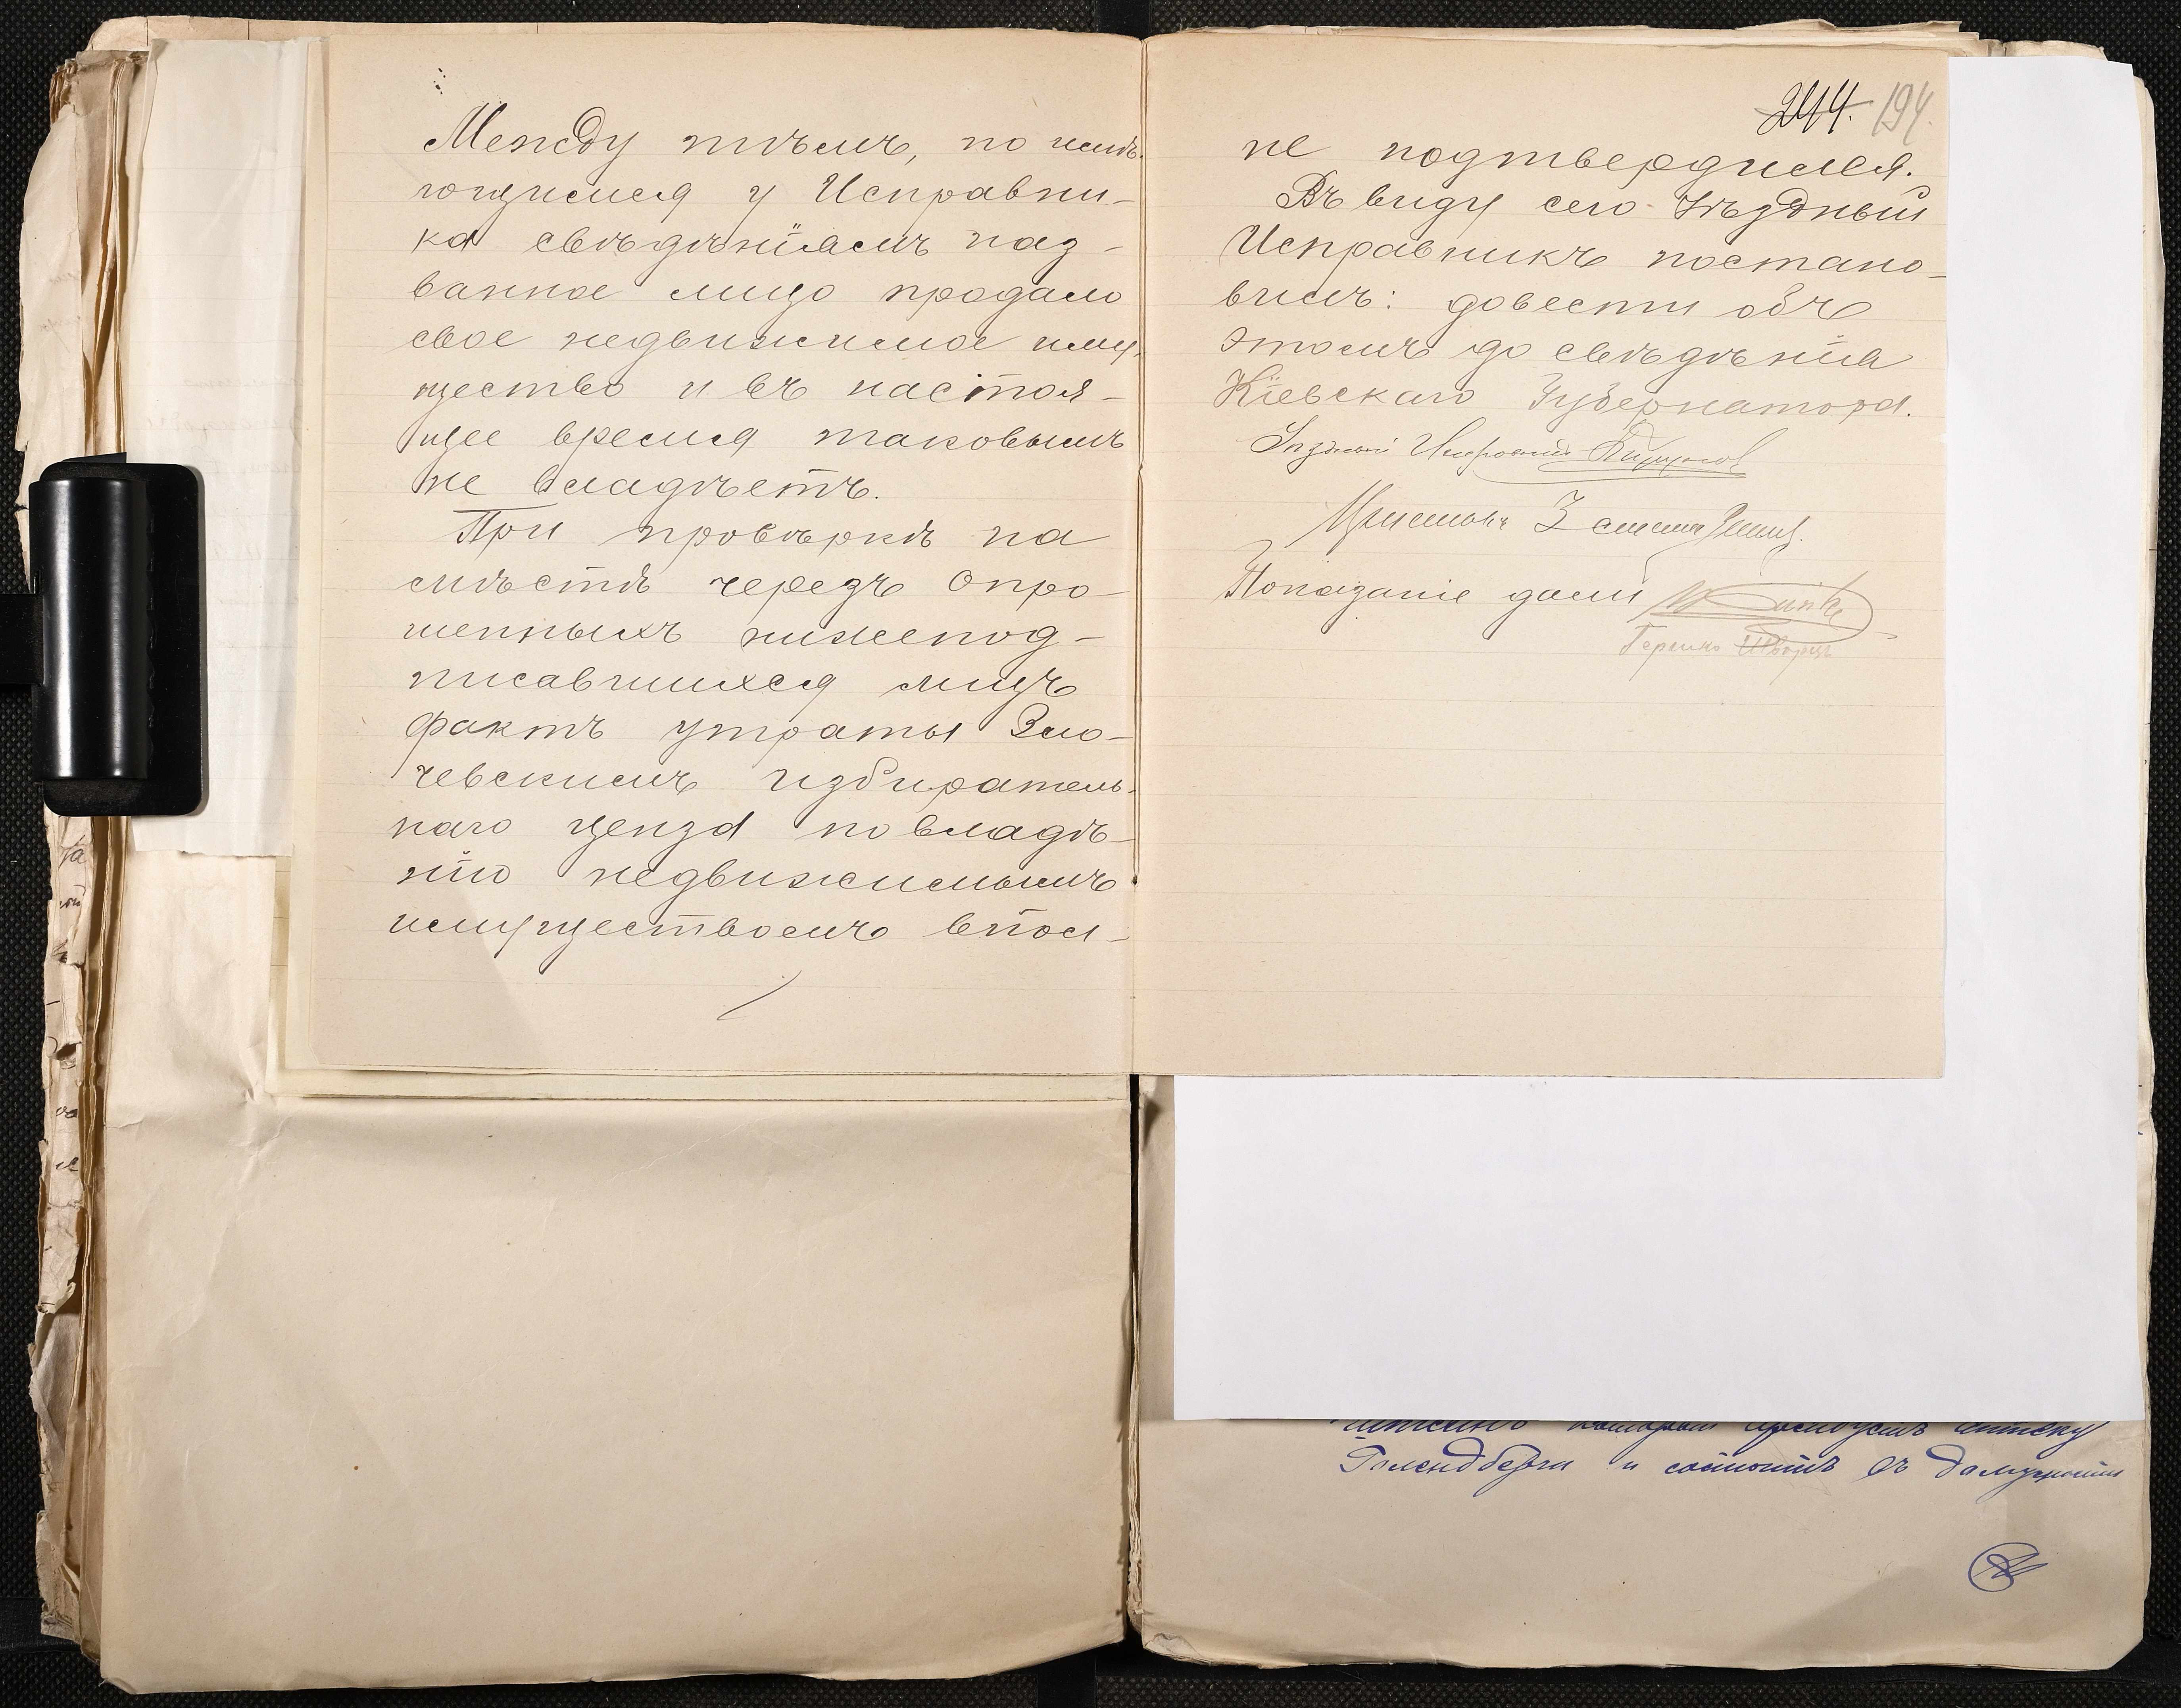 Между тѣмъ, по имѣ-
ющимся у Исправни-
ка свѣдѣніямъ наз-
ванное лицо продало
свое недвижимое иму-
щество и въ настоя-
щее время таковымъ
не владѣетъ.
При провѣркѣ на
мѣстѣ черезъ опро-
шенныхъ нижепод-
писавшихся лицъ
фактъ утраты Зло-
чевскимъ избиратель-
наго ценза по владѣ-
нію недвижимымъ
имуществомъ впол-
244. 194.
не подтвердился.
Въ виду сего Уѣздный
Исправникъ постано-
вилъ: довести объ
этомъ до свѣдѣнія
Кіевскаго Губернатора.
Уѣздный Исправникъ
Приставъ 3 стана
Показаніе дали
Гершко Шварцъ
который арендуетъ аптеку
и состоитъ въ